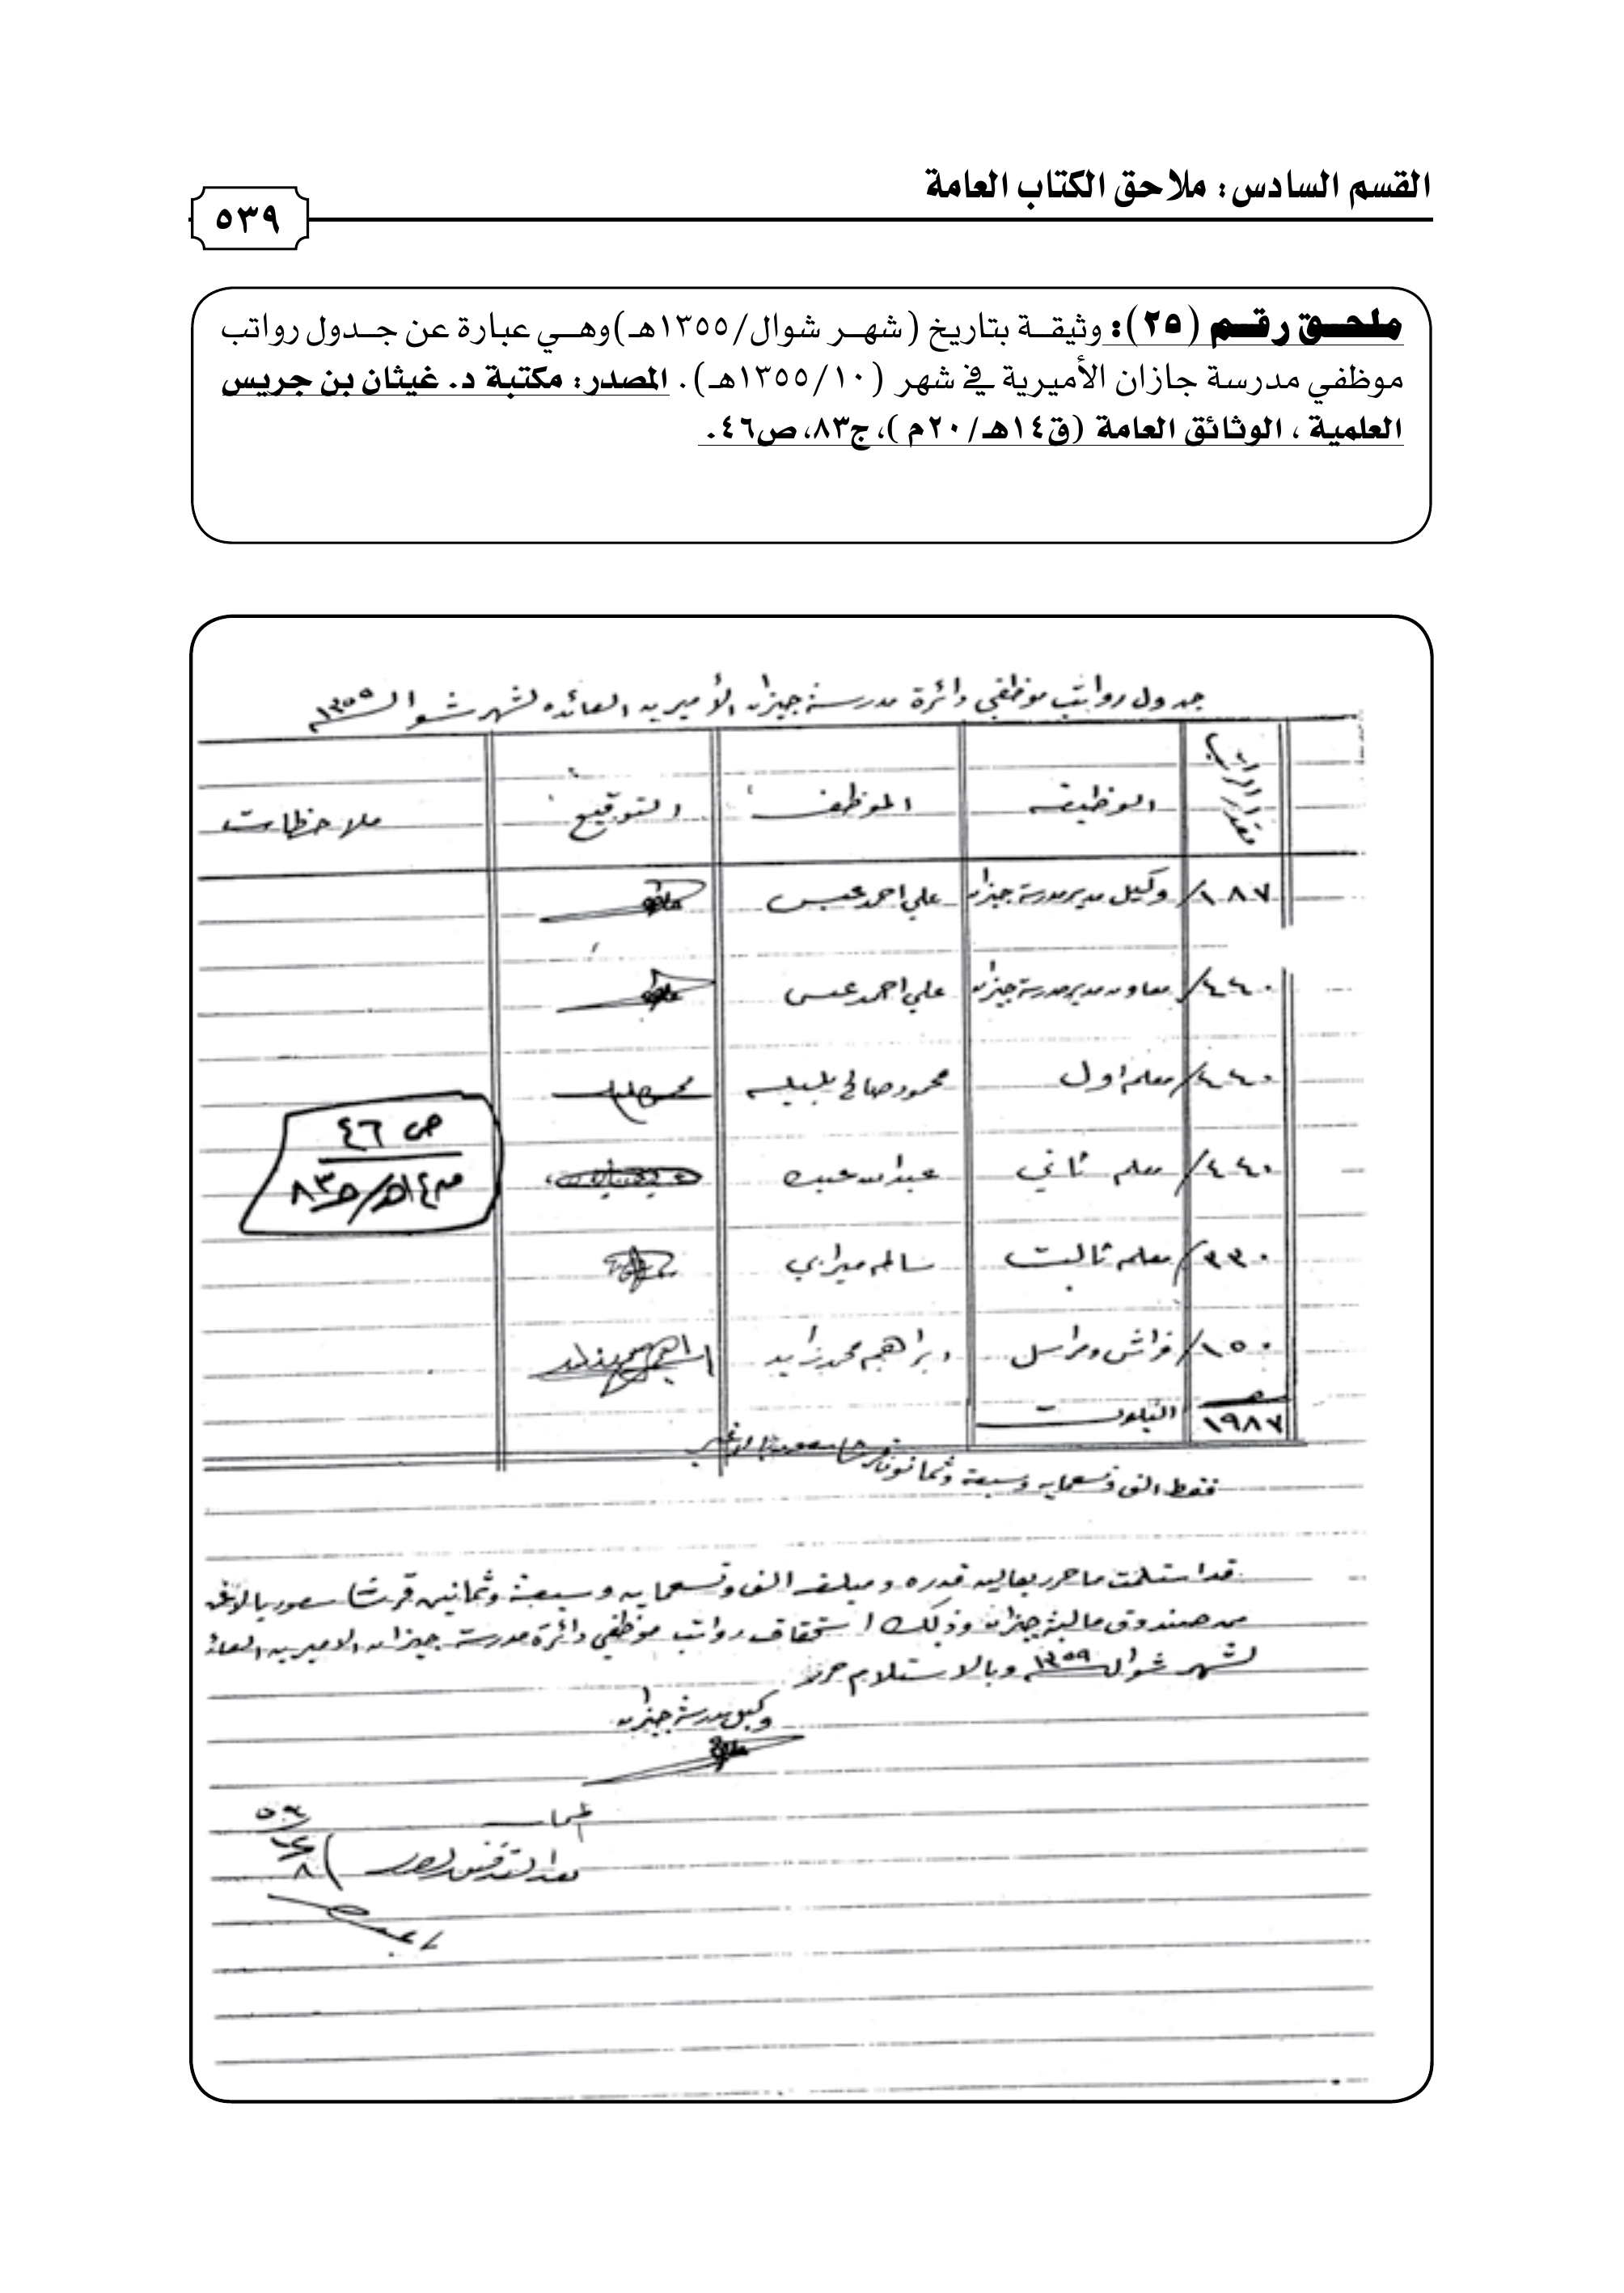 القسم السادس: ملاحق الكتاب العامة
٥٣٩
ملحق رقم (٢٥): وثيقة بتاريخ (شهر شوال/١٣٥٥هـ) وهي عبارة عن جدول رواتب
موظفي مدرسة جازان الأميرية في شهر (١٣٥٥/١٠هـ). المصدر: مكتبة د. غيثان بن جريس
العلمية ، الوثائق العامة (ق١٤هـ/٢٠م)، ج٨٣، ص٤٦.
جدول رواتب موظفي دائرة مدرسة جيزان الأميريه العائده لشهر شوال
مقدار الراتب الوظيفه الموظف التوقيع ملاحظات
١٨٧/ وكيل مدير مدرسة جيزان علي احمد عيسى
٤٤٠/ معاون مدير مدرسة جيزان علي احمد عيسى
٤٤٠/ معلم اول محمود صالح
٤٤٠/ معلم ثاني عبدالله
٣٣٠/ معلم ثالث سالم ميرابي
١٥٠/ فراش ومراسل ابراهيم محمد زايد
١٩٨٧
ص ٤٦
ج ٨٣
فقط الف وتسعمايه وسبعة وثمانون قرشا
قد استلمت ما حرر بعاليه قدره ومبلغه الف وتسعمايه وسبعة وثمانين قرشا سعوديا لاغير
من صندوق مالية جيزان وذلك استحقاق رواتب موظفي دائرة مدرسة جيزان الاميريه
لشهر شوال وبالاستلام حرر
وكيل مدرسة جيزان